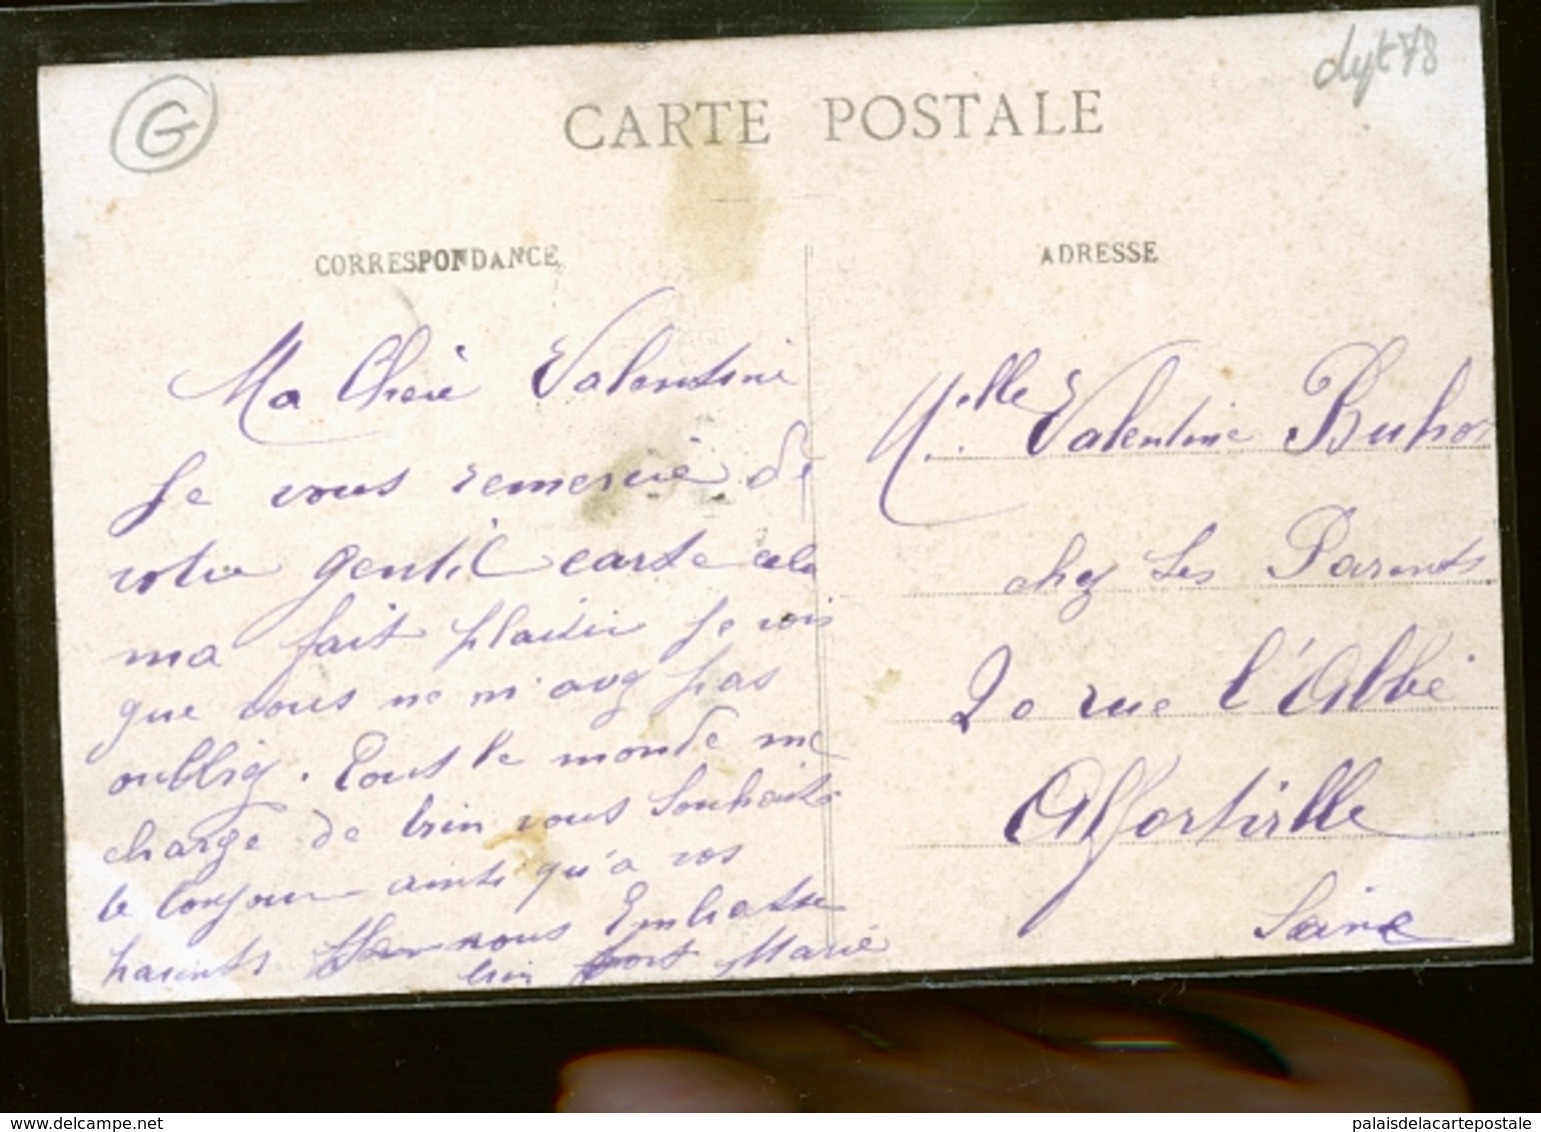 G
dypt 78
CARTE POSTALE
CORRESPONDANCE
ADRESSE
Ma Cherè Valentine
Je vous remercie de
votre gentil carte cela
ma fait plaisir je vois
que vous ne m'avez pas
oubliez. Tous le monde me
charge de bien vous souhaiter
le bonjour ainsi qu'a vos
parents nous Embrasse
bien fort Marie
Melle Valentine Buhot
chez ses Parents
20 rue l'Abbé
Alfortville
Seine
delcampe.net
palaisdelacartepostale